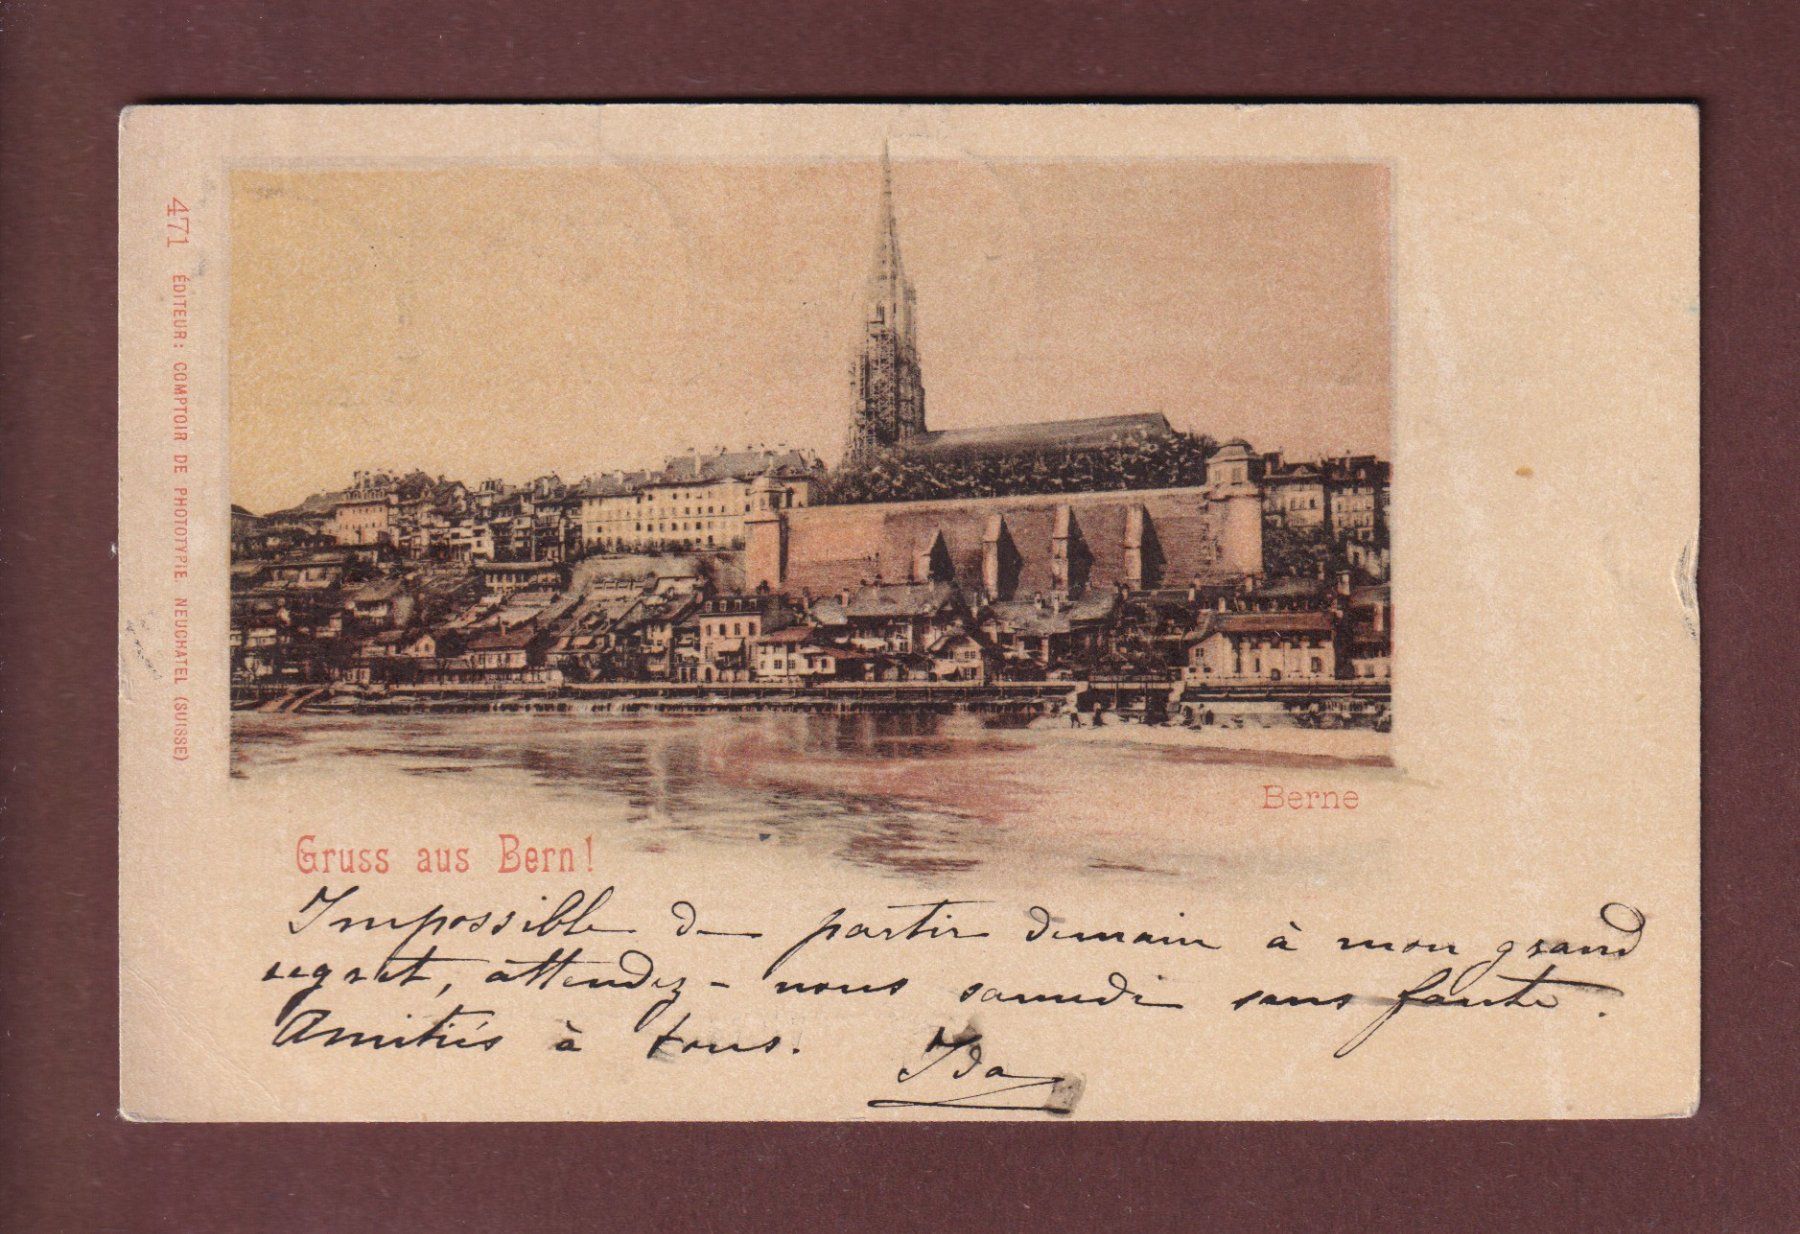 471 ÉDITEUR: COMPTOIR DE PHOTOTYPIE NEUCHATEL (SUISSE)
Berne
Gruss aus Bern!
Impossible de partir demain à mon grand
regret, attendez-nous samedi sans faute.
Amitiés à tous.
Ida